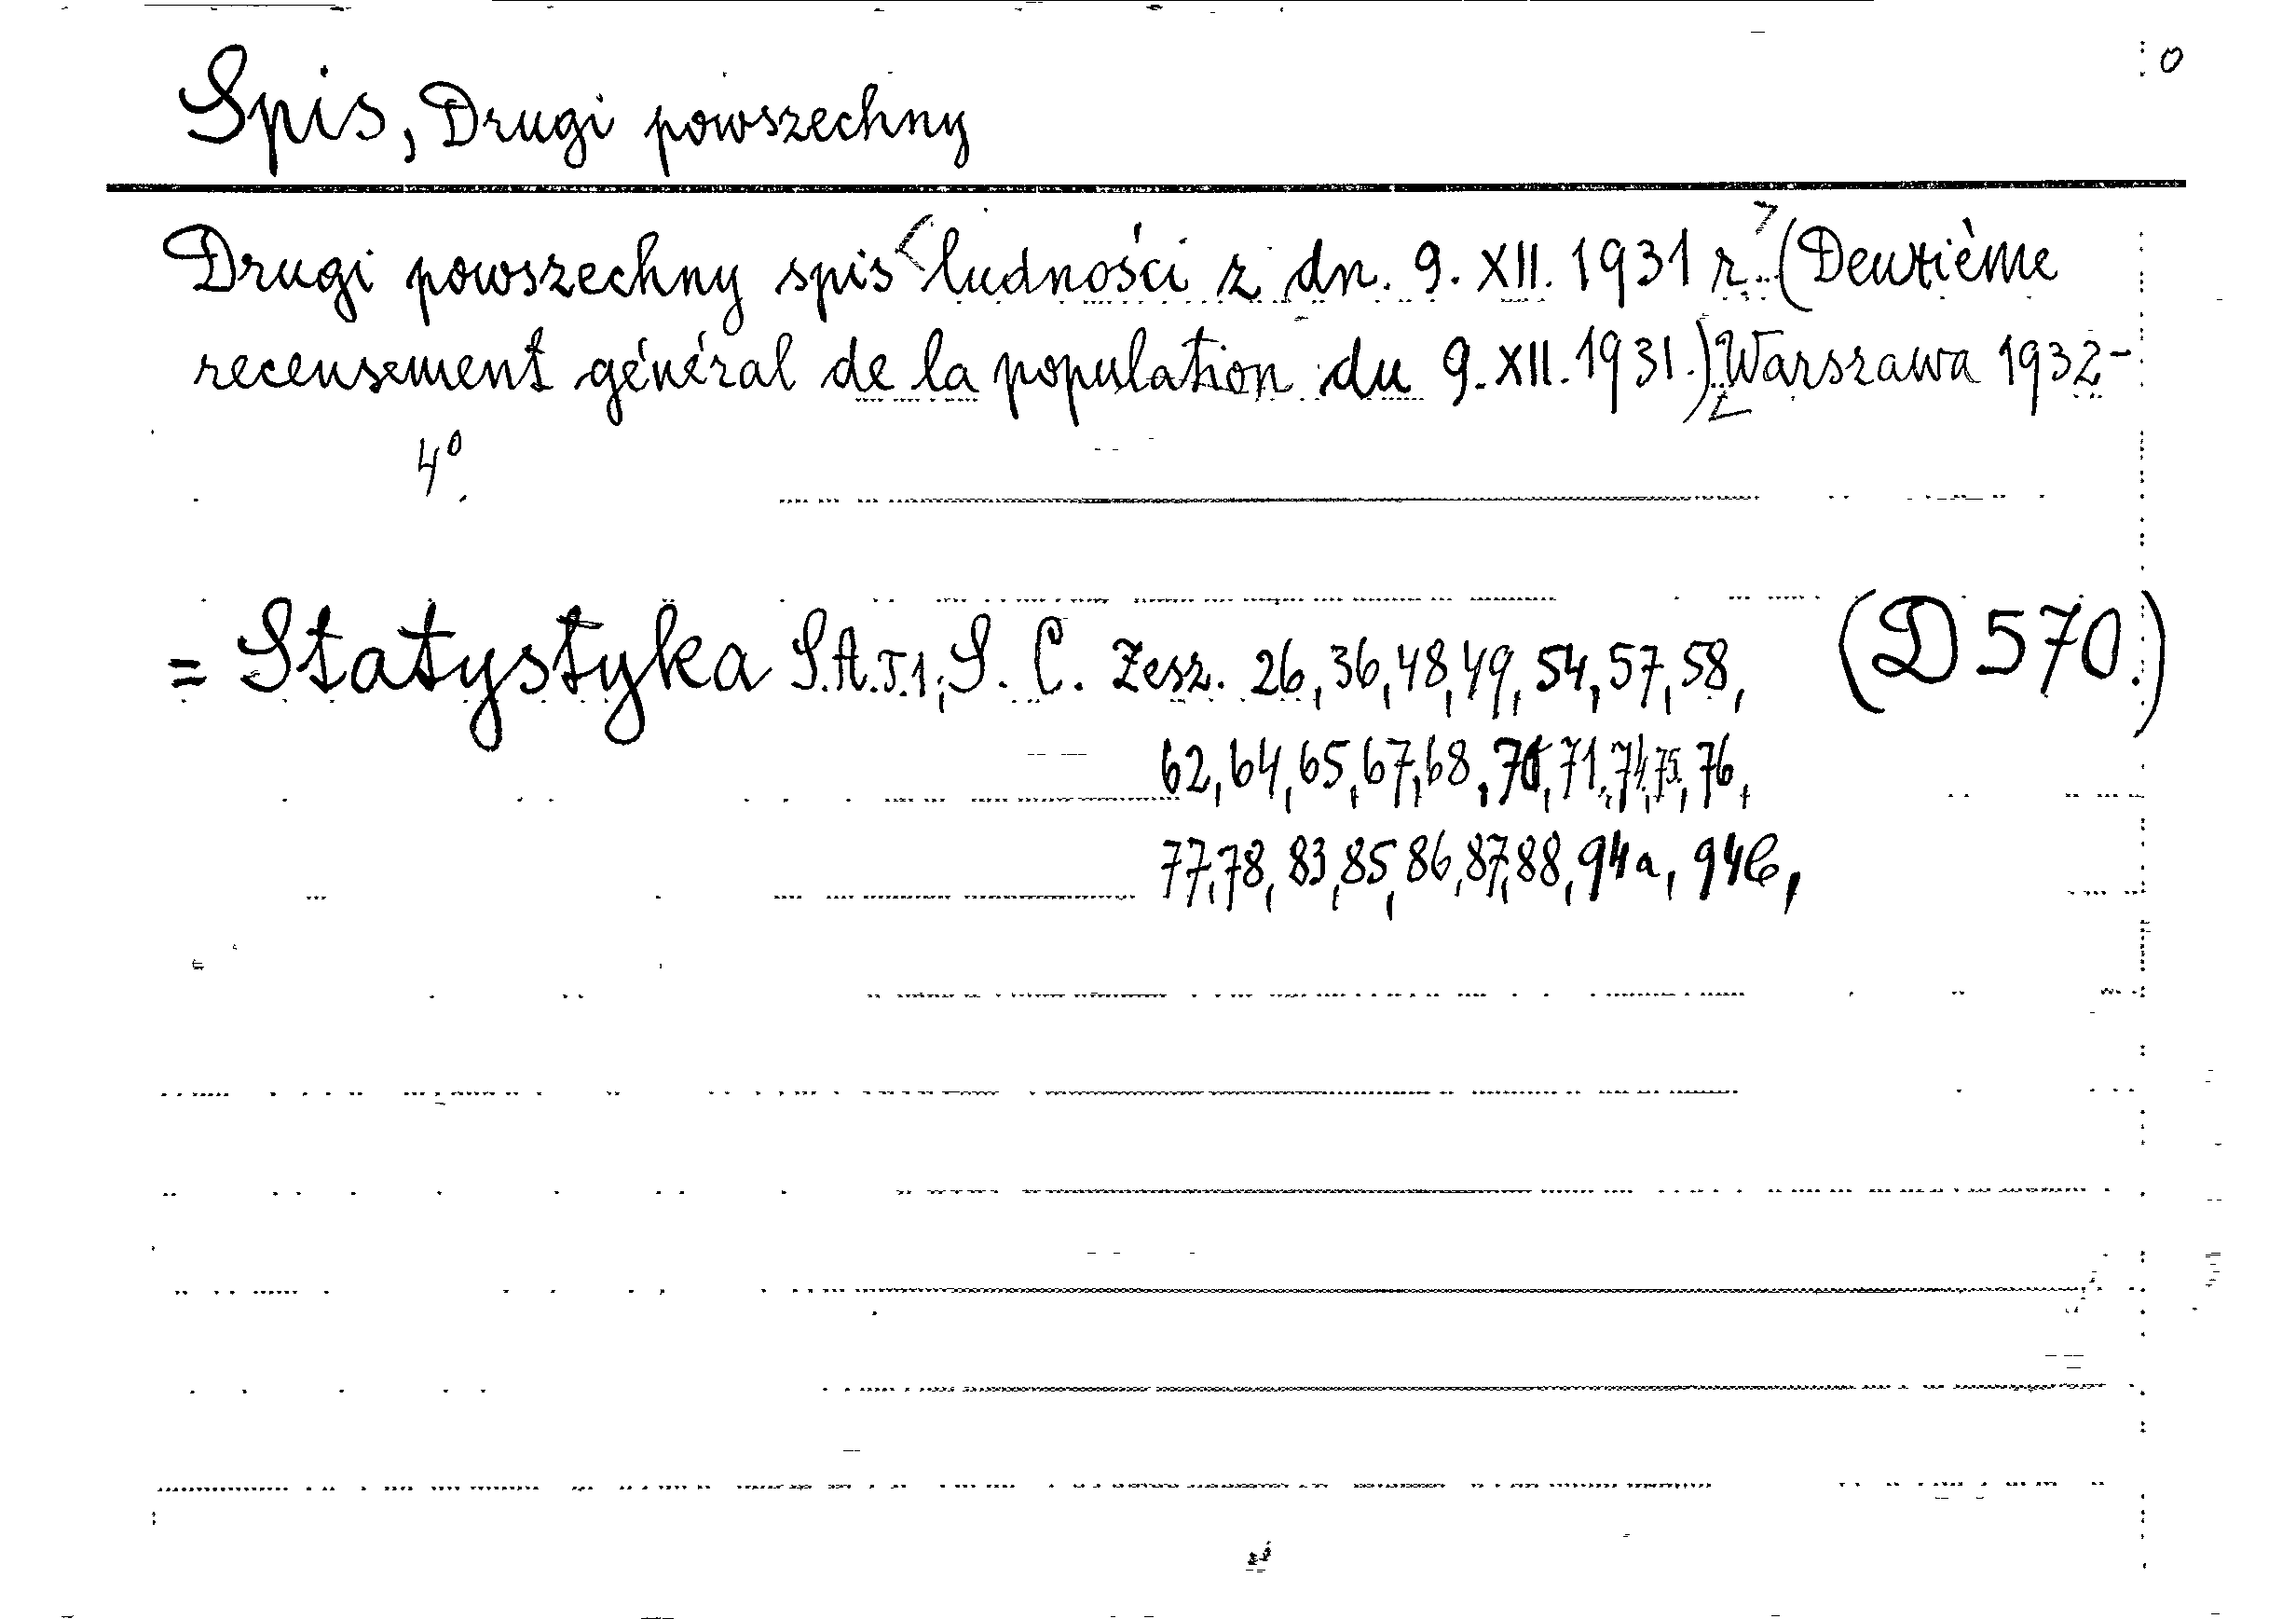 0
Spis, Drugi powszechny
Drugi powszechny spis <ludności z dn. 9. XII. 1931 r.> (Deuxième
recensement général de la population du 9. XII. 1931.) Warszawa 1932-
4⁰.
= Statystyka S. C. Zesz. 26, 36, 48, 49, 54, 57, 58, (D 570.)
62, 64, 65, 67, 68, 70, 71, 74, 75, 76,
77, 78, 83, 85, 86, 87, 88, 94a, 94b,